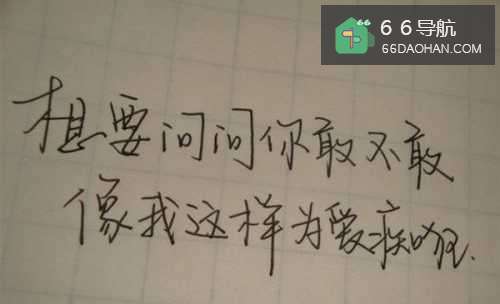 ６６导航
66DAOHAN.COM
想要问问你敢不敢
像我这样为爱痴狂.